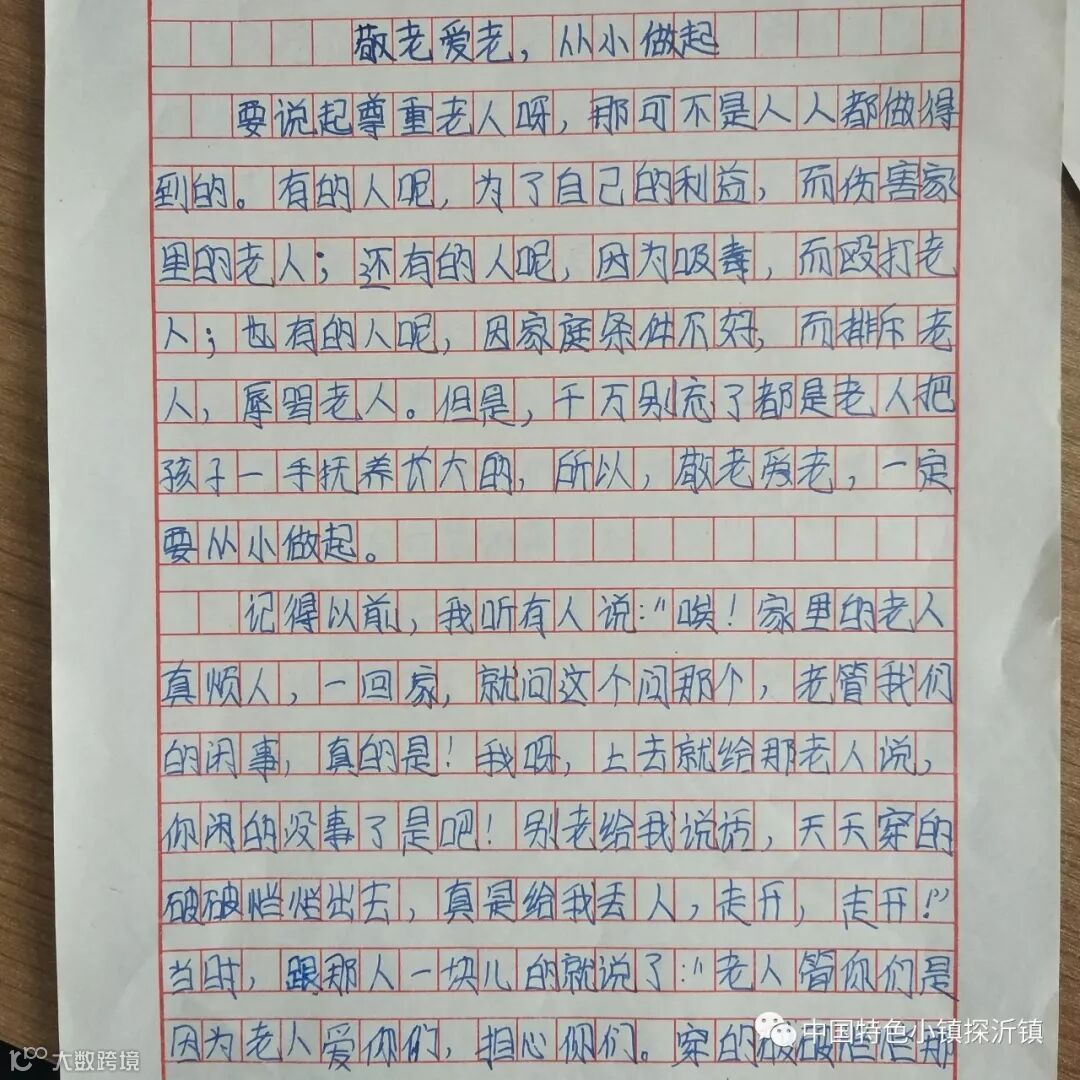 敬老爱老，从小做起
要说起尊重老人呀，那可不是人人都做得
到的。有的人呢，为了自己的利益，而伤害家
里的老人；还有的人呢，因为吸毒，而殴打老
人；也有的人呢，因家庭条件不好，而排斥老
人，辱骂老人。但是，千万别忘了都是老人把
孩子一手抚养长大的，所以，敬老爱老，一定
要从小做起。
记得以前，我听有人说："唉！家里的老人
真烦人，一回家，就问这个问那个，老管我们
的闲事，真的是！我呀，上去就给那老人说，
你闲的没事了是吧！别老给我说话，天天穿的
破破烂烂出去，真是给我丢人，走开，走开！"
当时，跟那人一块儿的就说了："老人管你们是
因为老人爱你们，担心你们。穿的破破烂烂那
中国特色小镇探沂镇
大数跨境